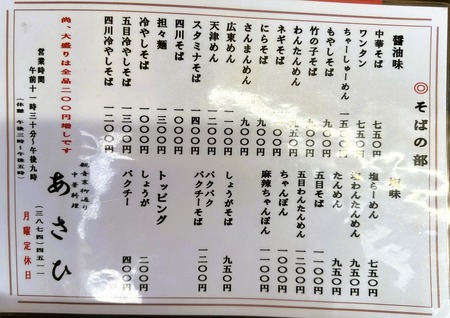 ◎そばの部
醤油味
中華そば 七五〇円
ワンタン 七五〇円
ちゃーしゅーめん
もやしそば 九〇〇円
竹の子そば 九〇〇円
ネギそば
わんたんめん 九五〇円
にらそば 九〇〇円
さんまんめん 九〇〇円
広東めん
天津めん
スタミナそば
四川そば
担々麺
冷やしそば 一〇〇〇円
五目冷やしそば 一三〇〇円
四川冷やしそば 一二〇〇円
味
塩らーめん 七五〇円
わんたんめん 九五〇円
たんめん 九五〇円
五目そば 一〇〇〇円
五目わんたんめん 一一〇〇円
ちゃんぽん
麻辣ちゃんぽん
しょうがそば 九五〇円
パクパク
パクチーそば 一二〇〇円
トッピング
しょうが 二〇〇円
パクチー 四〇〇円
尚、大盛りは全品二〇〇円増しです
営業時間
午前十一時三十分～午後九時
(休憩 午後三時～午後五時)
観音裏柳通り
中華料理
あさひ
(三八七四)四五一一
月曜定休日